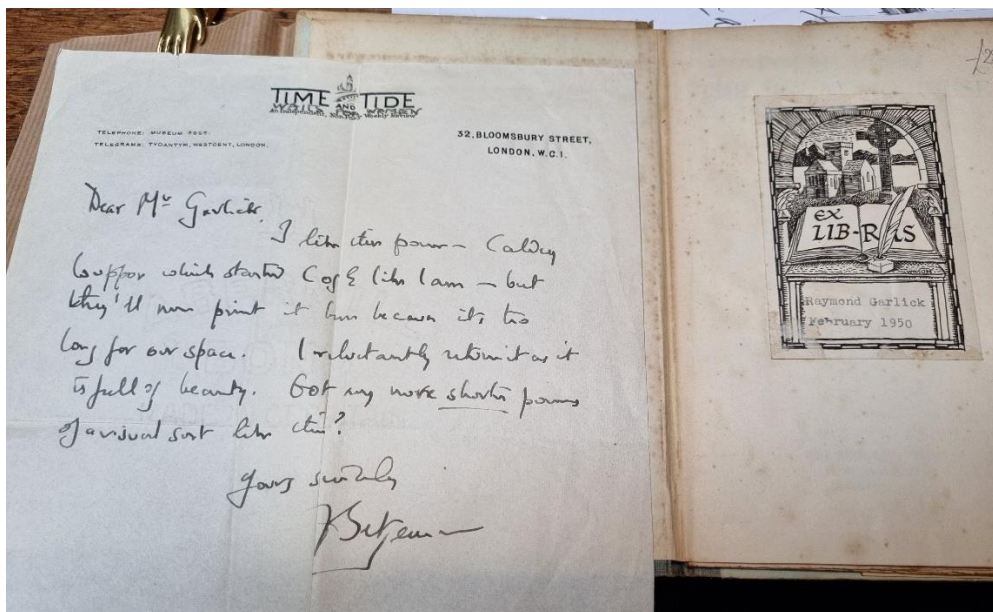 TIME AND TIDE
An Independent Weekly Review
TELEPHONE: MUSEUM
TELEGRAMS: TYDANTYM, WESTCENT, LONDON.
32, BLOOMSBURY STREET,
LONDON, W.C.1.
Dear Mr Garlick,
I like this poem – Caldey
I suppose which started C of E like I am – but
they'll never print it here because it's too
long for our space. I reluctantly return it as it
is full of beauty. Got any more shorter poems
of a visual sort like this?
Yours sincerely
J Betjeman
EX
LIB-RIS
Raymond Garlick
February 1950